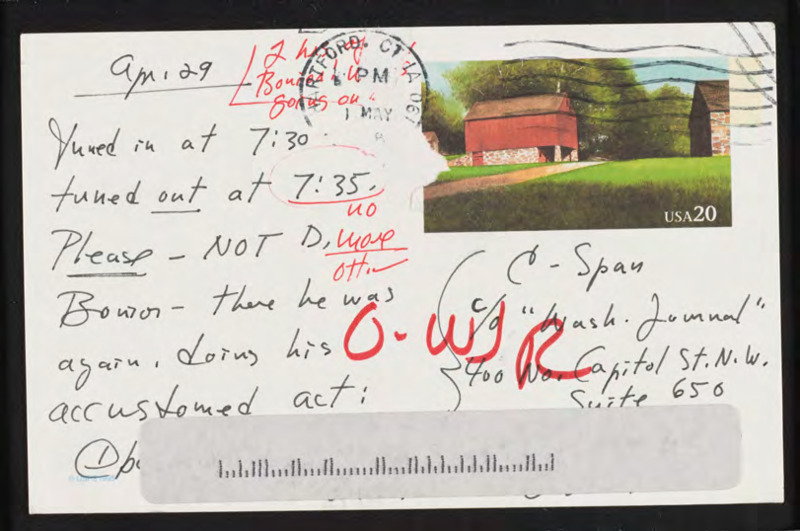 Apr. 29
Tuned in at 7:30
tuned out at 7:35.
Please - NOT D.
Bonior - there he was
again, doing his
accustomed act:
①
2
Bonior
going on
no
more
HARTFORD. CT
PM
1 MAY
USA20
C-Span
c/o "Wash. Journal"
400 No. Capitol St. N.W.
Suite 650